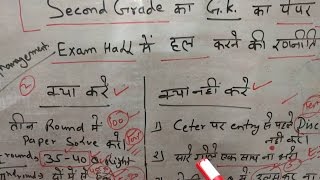 Second Grade का G.K. का पेपर
Exam Hall में हल करने की रणनीति
management
② क्या करे
क्या नहीं करे
तीन Round में
Paper Solve करे
100
1) Ceter पर entry से पहले Disc
नहीं करे।
35-40 Right
2) सारे गोले एक साथ ना भरे